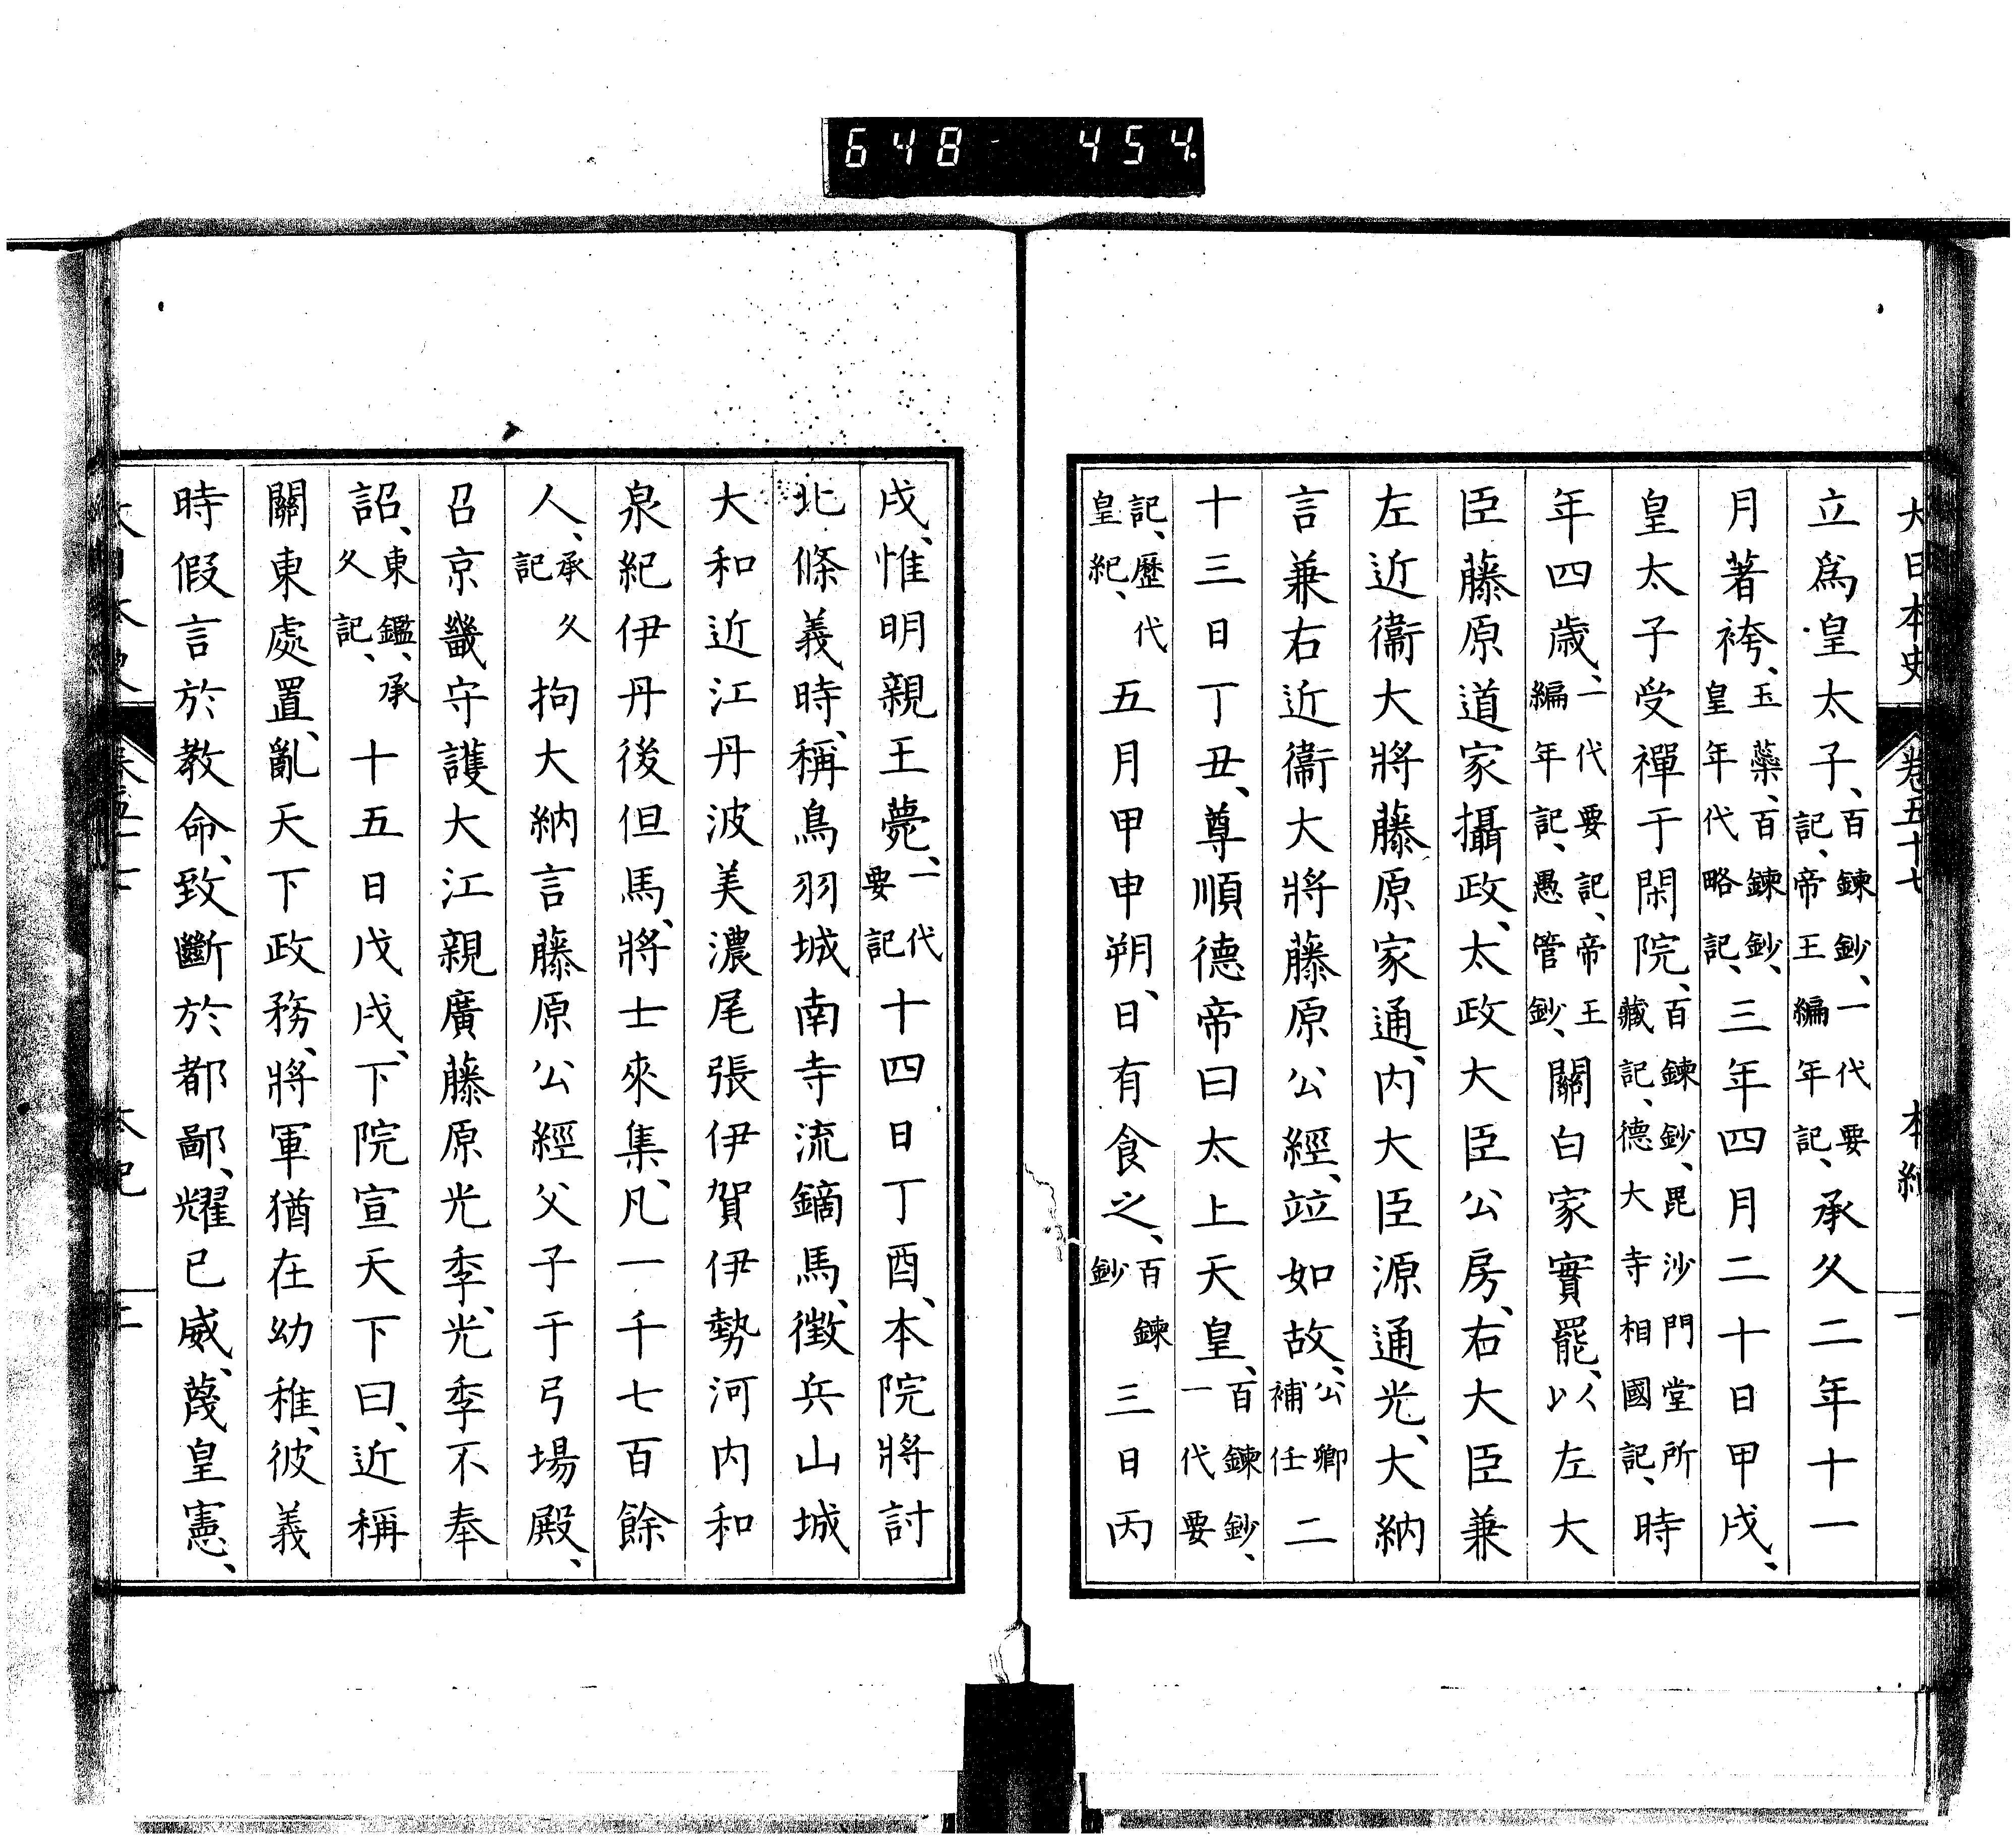 648-454.
大日本史 卷五十七 本紀 一
立爲皇太子、百鍊鈔、一代要記、帝王編年記、承久二年十一
月著袴、玉藥、百鍊鈔、皇年代略記、三年四月二十日甲戌、
皇太子受禪于閑院、百鍊鈔、毘沙門堂所藏記、德大寺相國記、時
年四歲、一代要記、帝王編年記、愚管鈔、關白家實罷、以左大
臣藤原道家攝政、太政大臣公房、右大臣兼
左近衞大將藤原家通、內大臣源通光、大納
言兼右近衞大將藤原公經、竝如故、公卿補任二
十三日丁丑、尊順德帝曰太上天皇、百鍊鈔、一代要
記、歷代皇紀、五月甲申朔、日有食之、百鍊鈔三日丙
戌、惟明親王薨、一代要記十四日丁酉、本院將討
北條義時、稱鳥羽城南寺流鏑馬、徵兵山城
大和近江丹波美濃尾張伊賀伊勢河內和
泉紀伊丹後但馬、將士來集、凡一千七百餘
人、承久記拘大納言藤原公經父子于弓場殿、
召京畿守護大江親廣藤原光季、光季不奉
詔、東鑑、承久記、十五日戊戌、下院宣天下曰、近稱
關東處置、亂天下政務、將軍猶在幼稚、彼義
時假言於教命、致斷於都鄙、燿已威、蔑皇憲、